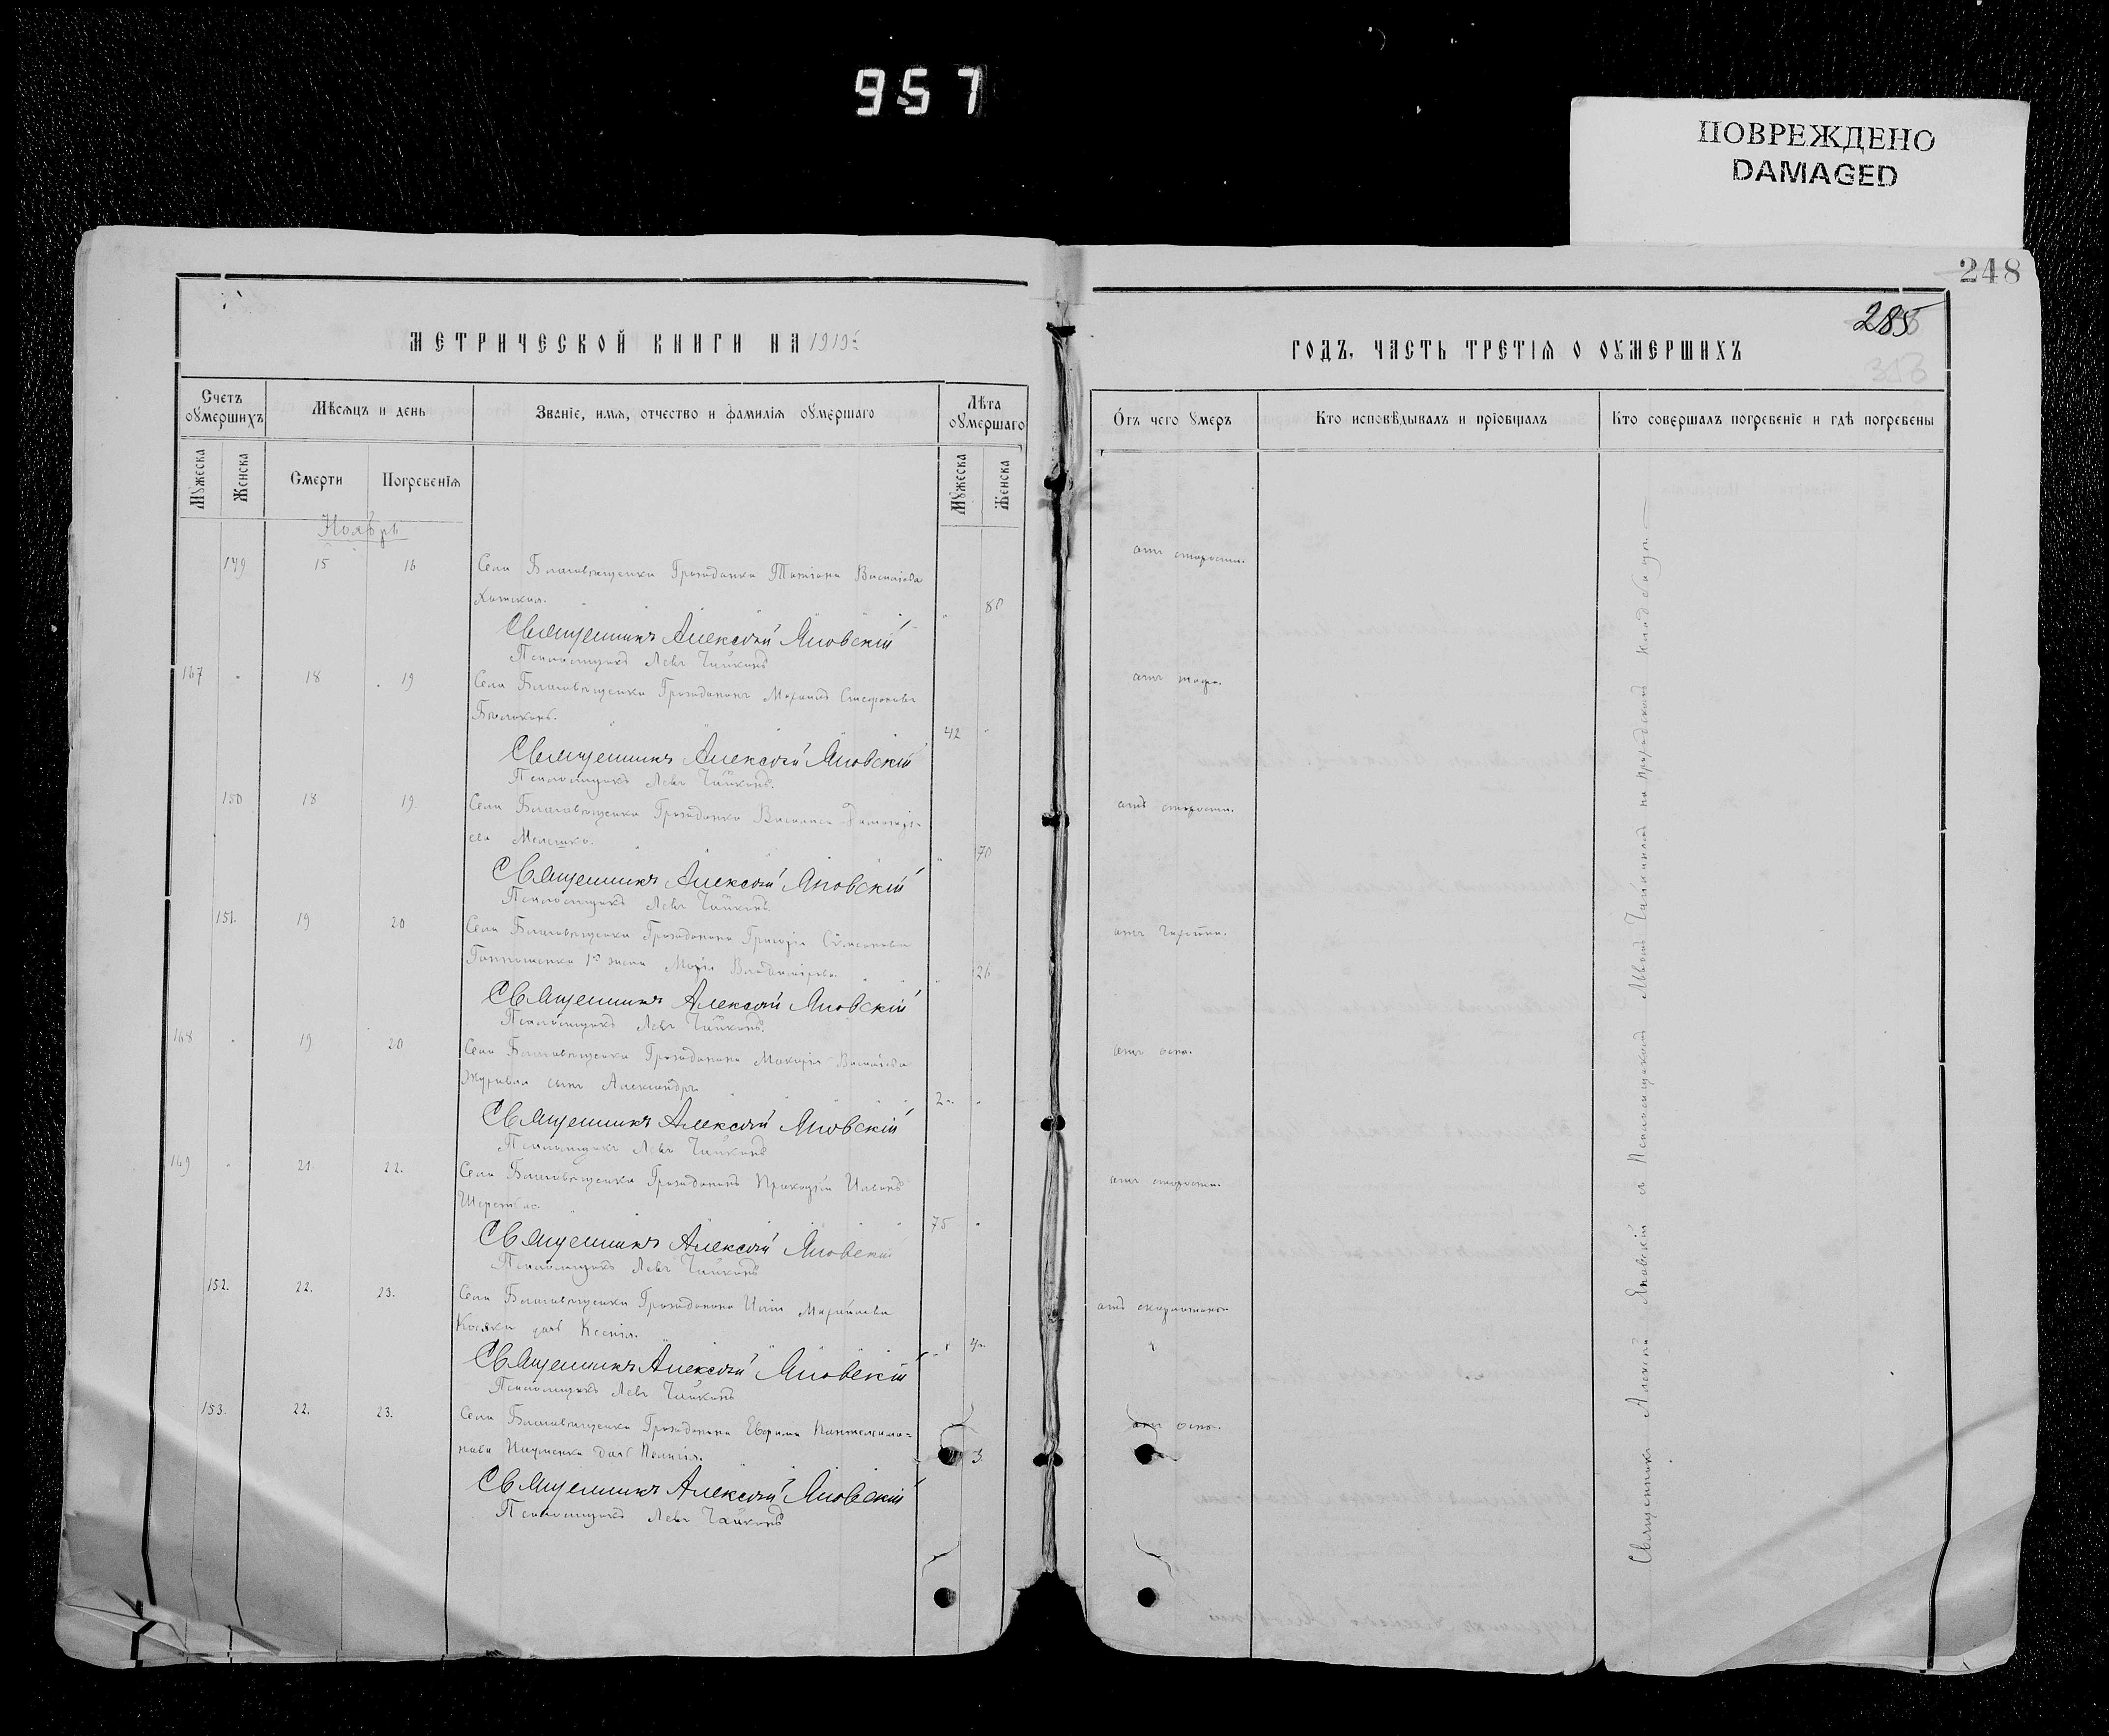 957
ПОВРЕЖДЕНО
DAMAGED
248
285
МЕТРИЧЕСКОЙ КНИГИ НА 1919 г.
ГОДЪ, ЧАСТЬ ТРЕТІЯ О ОУМЕРШИХЪ
Счетъ оумершихъ
Мѣсяцъ и день
Званіе, имя, отчество и фамилія оумершаго
Лѣта оумершаго
Отъ чего умеръ
Кто исповѣдывалъ и пріобщалъ
Кто совершалъ погребеніе и гдѣ погребены
Мужеска
Женска
Смерти
Погребенія
Мужеска
Женска
Ноябрь
149 15 16 Села Благовѣщенки Гражданка Татіана Василіева
80
отъ старости.
Священникъ Алексѣй Яновскій
Псаломщикъ Левъ Чайкинъ
147 " 18 19 Села Благовѣщенки Гражданинъ Михаилъ Стефановъ
Бѣлоконь.
42 "
отъ тифа.
Священникъ Алексѣй Яновскій
Псаломщикъ Левъ Чайкинъ.
150 18 19. Села Благовѣщенки Гражданка
ева Мелешко.
" 70
отъ старости.
Священникъ Алексѣй Яновскій
Псаломщикъ Левъ Чайкинъ.
151. 19 20 Села Благовѣщенки Гражданина Григорія Симеонова
жена Марія Владимірова.
" 26
отъ
Священникъ Алексѣй Яновскій
Псаломщикъ Левъ Чайкинъ.
148 " 19 20 Села Благовѣщенки Гражданина Макарія Василіева
Журавля сынъ Александръ
2 "
отъ оспы.
Священникъ Алексѣй Яновскій
Псаломщикъ Левъ Чайкинъ
149 " 21 22. Села Благовѣщенки Гражданинъ Прокопій
75 "
отъ старости.
Священникъ Алексѣй Яновскій
Псаломщикъ Левъ Чайкинъ
152. 22. 23. Села Благовѣщенки Гражданина Иліи
дочь Ксенія.
" 4
отъ скарлатины
Священникъ Алексѣй Яновскій
Псаломщикъ Левъ Чайкинъ
153. 22. 23. Села Благовѣщенки Гражданина Ефима Пантелеимо-
нова Науменка дочь
3.
отъ оспы.
Священникъ Алексѣй Яновскій
Псаломщикъ Левъ Чайкинъ
Священникъ Алексѣй Яновскій съ Псаломщикомъ Львомъ Чайкинымъ на приходскомъ кладбищѣ